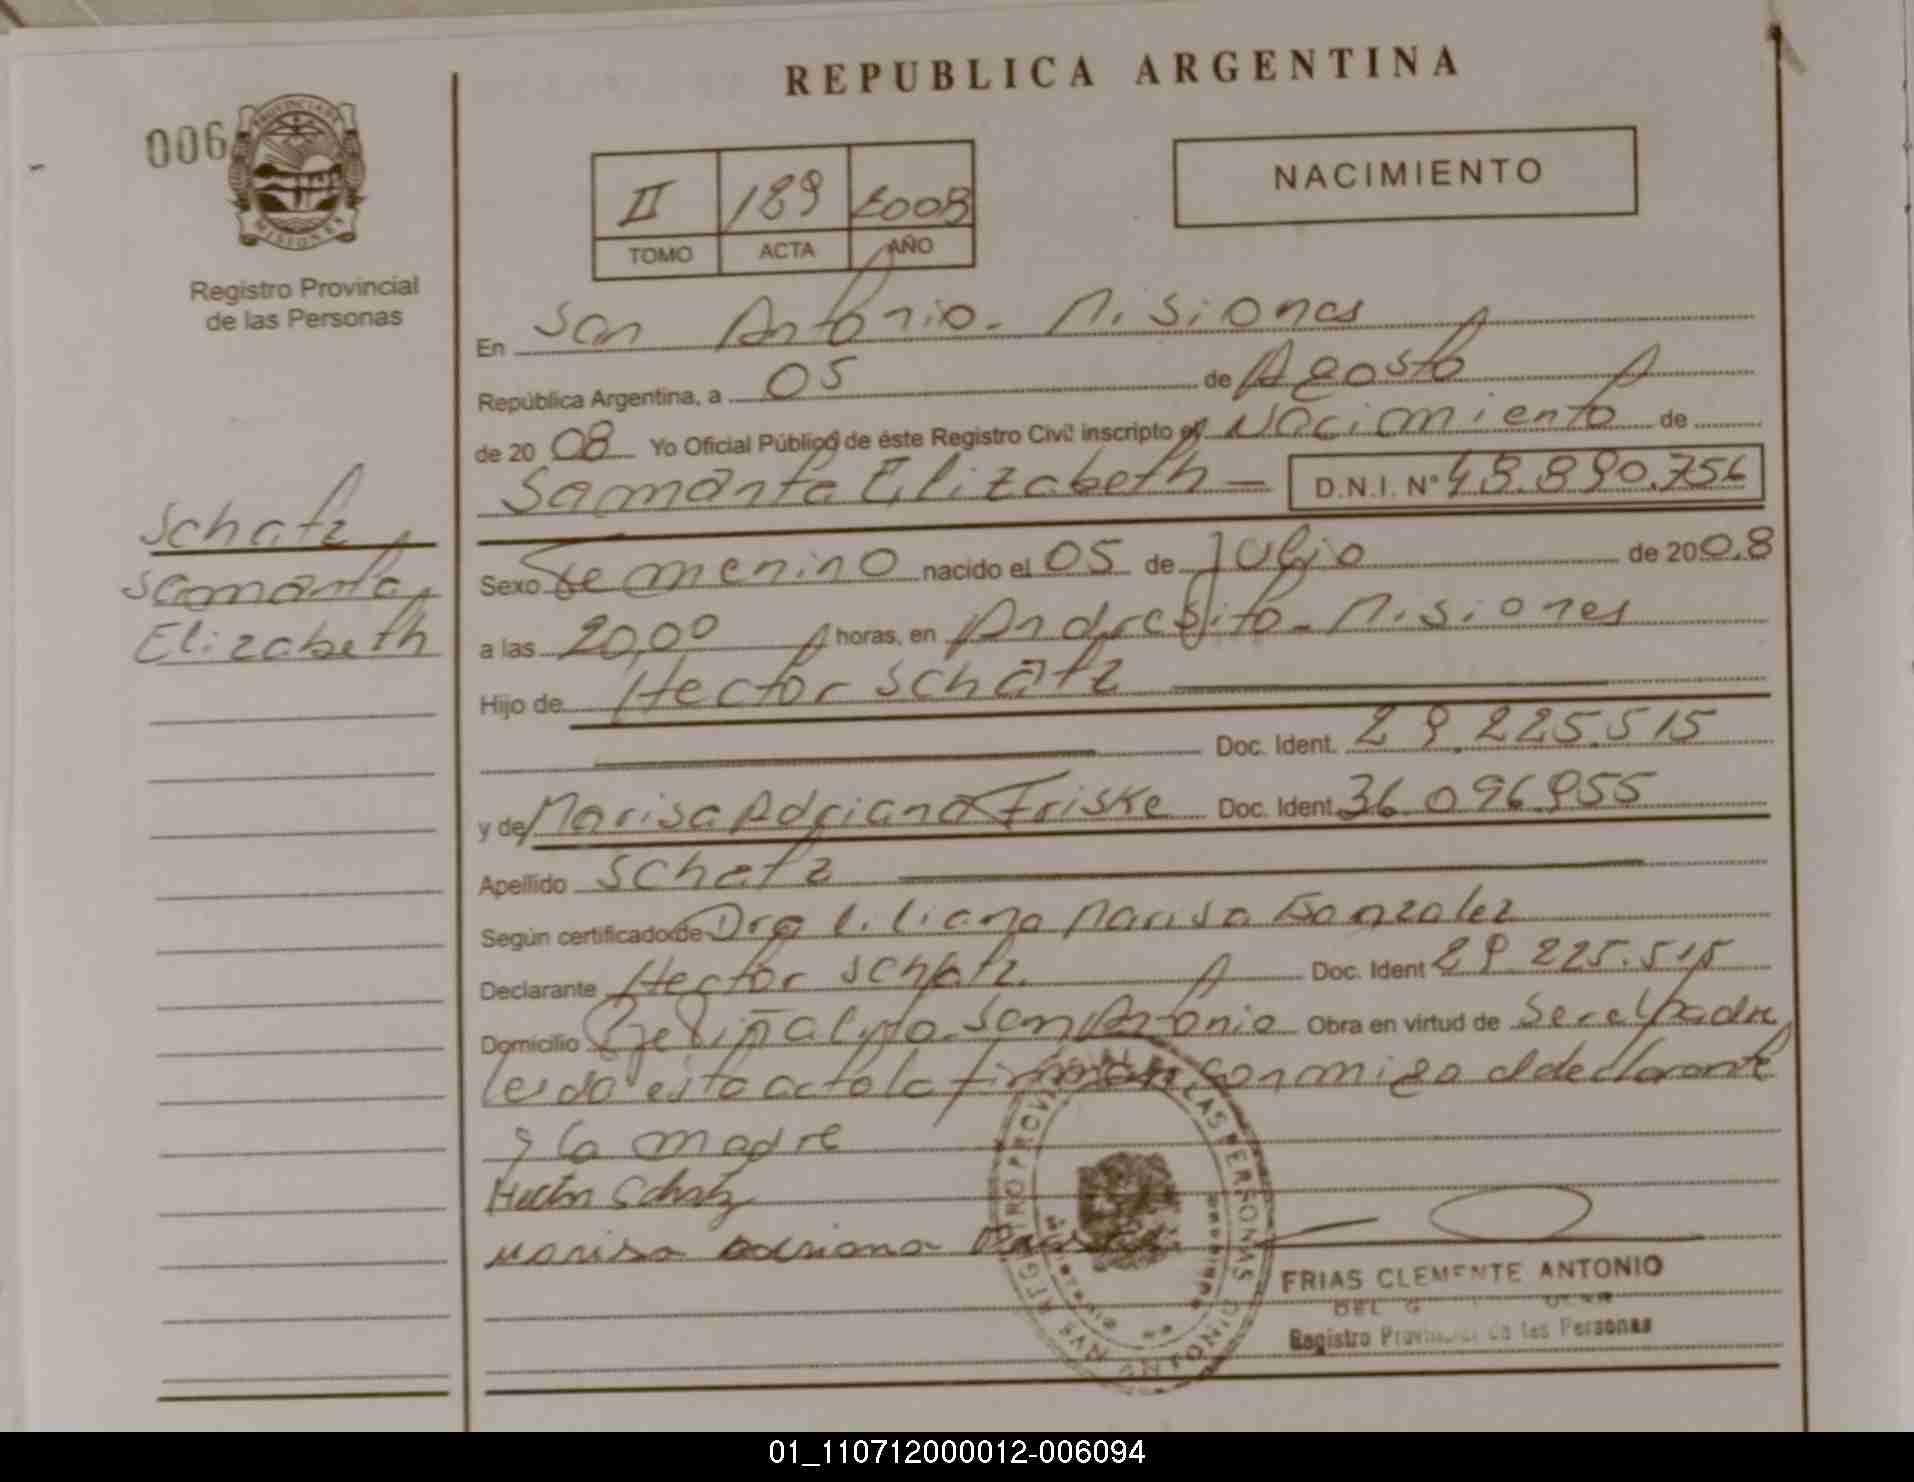 REPUBLICA ARGENTINA
006
PROVINCIA DE
MISIONES
Registro Provincial
de las Personas
II 189 2008
TOMO ACTA AÑO
NACIMIENTO
En San Antonio - Misiones
República Argentina, a 05 de Agosto
de 20 08 Yo Oficial Público de éste Registro Civil inscripto el Nacimiento de
Samanta Elizabeth — D.N.I. N° 48.890.756
Schatz
Samanta
Elizabeth
Sexo Femenino nacido el 05 de Julio de 2008
a las 20,00 horas, en Andresito - Misiones
Hijo de Hector Schatz
Doc. Ident. 29.225.515
y de Marisa Adriana Friske Doc. Ident. 36.096.955
Apellido Schatz
Según certificado de Dra Liliana Marisa Gonzalez
Declarante Hector Schatz. Doc. Ident 29.225.515
Domicilio San Antonio Obra en virtud de ser el padre
leida esta acta la firman conmigo el declarante
y la madre
Hector Schatz
Marisa Adriana
REGISTRO PROVINCIAL DE LAS PERSONAS
FRIAS CLEMENTE ANTONIO
Registro Provincial de las Personas
01_110712000012-006094